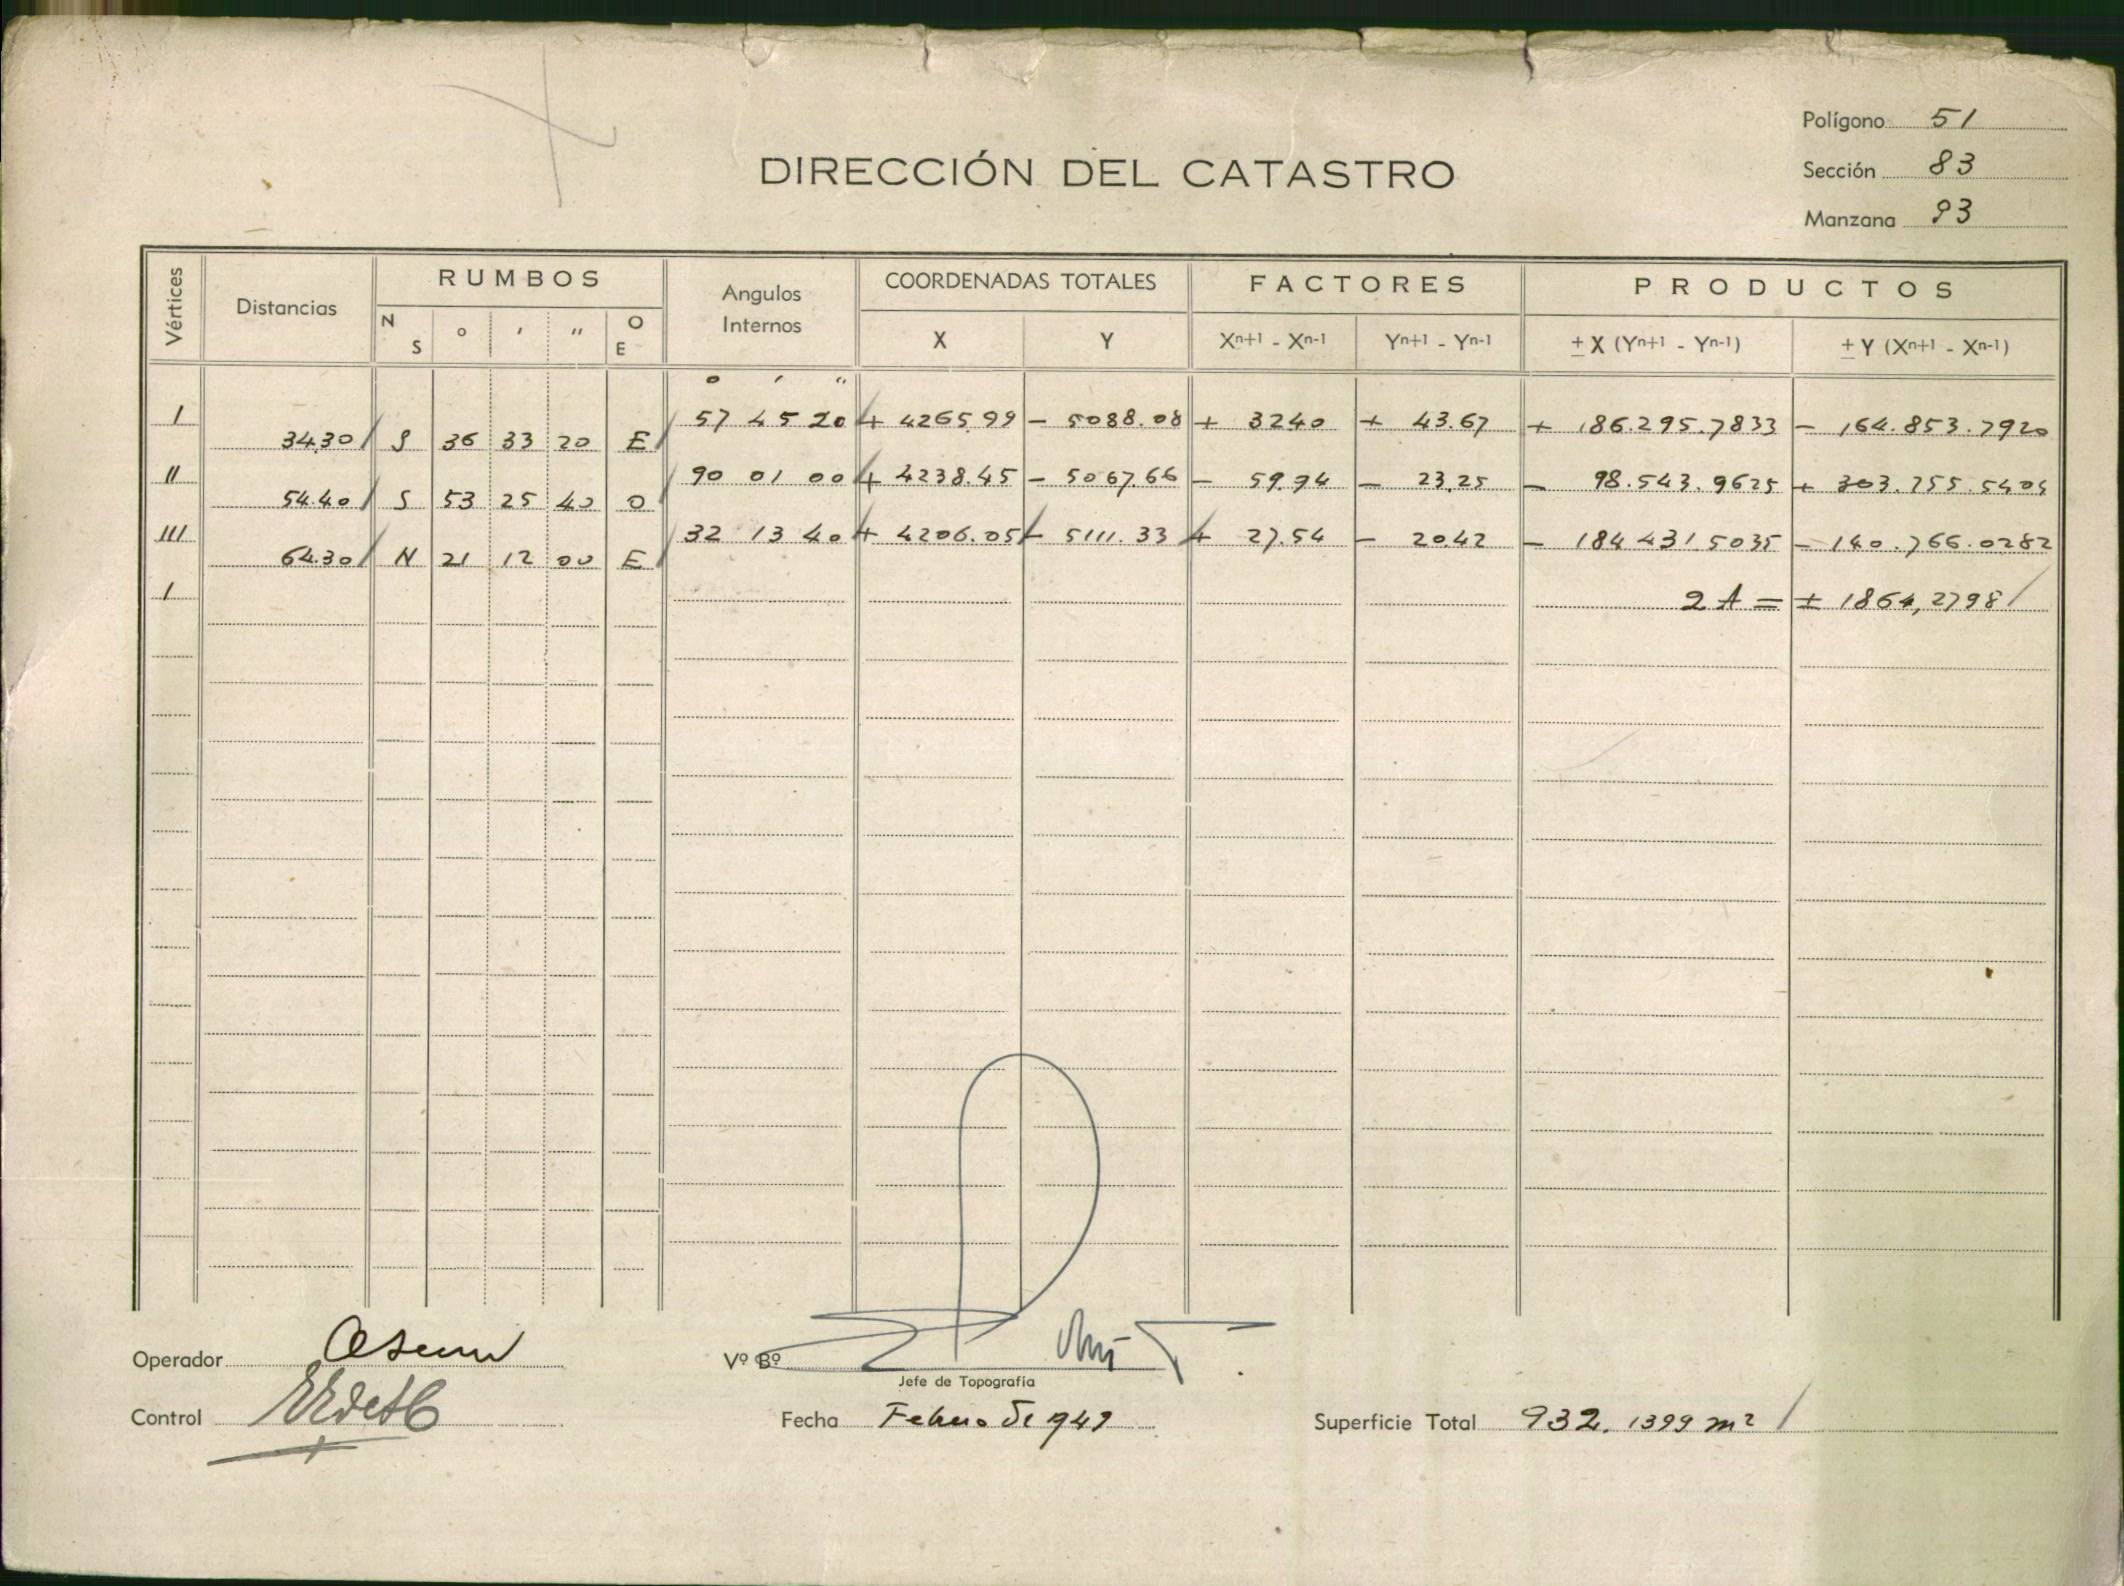 Polígono 51
DIRECCIÓN DEL CATASTRO
Sección 83
Manzana 93
Vértices Distancias RUMBOS Angulos Internos COORDENADAS TOTALES FACTORES PRODUCTOS
N S ° ' " O E X Y Xn+1 - Xn-1 Yn+1 - Yn-1 ± X (Yn+1 - Yn-1) ± Y (Xn+1 - Xn-1)
° ' "
I 57 45 20 + 4265.99 - 5088.08 + 3240 + 43.67 + 186.295.7833 - 164.853.7920
34.30 S 36 33 20 E
II 90 01 00 + 4238.45 - 5067.66 - 59.94 - 23.25 - 98.543.9625 + 303.755.5404
54.40 S 53 25 40 O
III 32 13 40 + 4206.05 - 5111.33 + 27.54 - 20.42 - 184 431 5035 - 140.766.0282
64.30 N 21 12 00 E
I 2 A = ± 1864,2798
Operador
Vº Bº
Jefe de Topografía
Control Fecha Superficie Total 932. 1399 m²